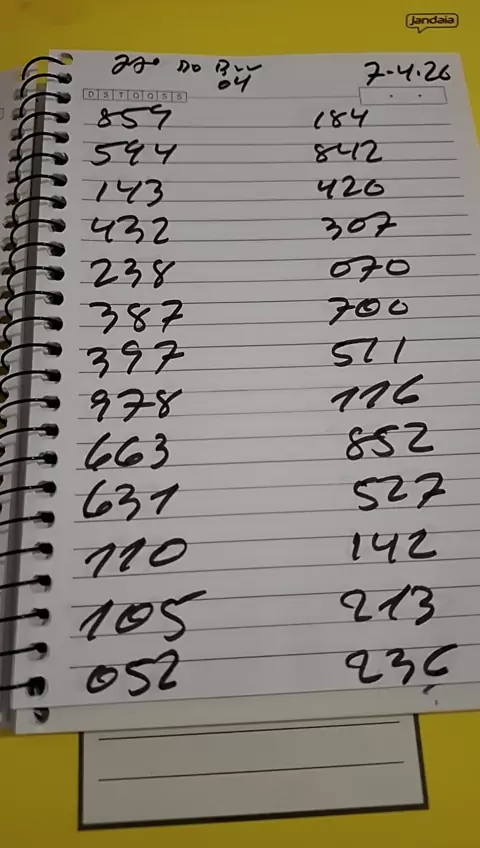 Jandaia
DO 7-4-26
04
D S T Q Q S S
859 184
594 842
143 420
432 307
238 070
387 700
397 511
978 116
663 852
631 527
110 142
105 213
052 236